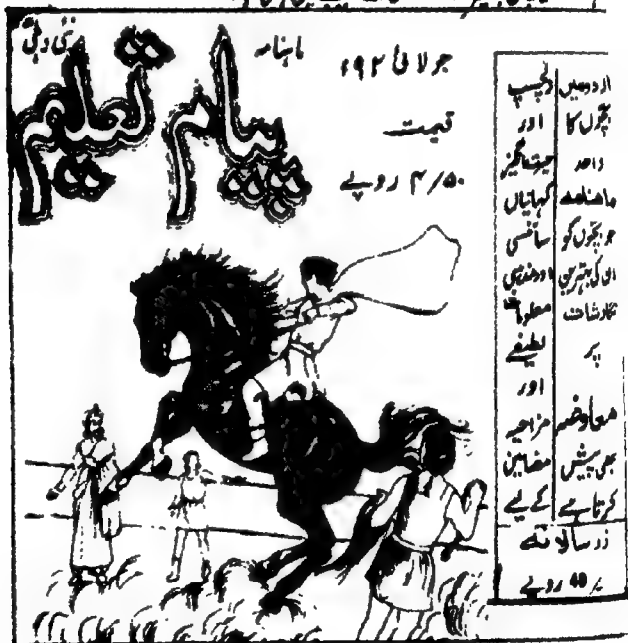 ماہنامہ
نئی دہلی
پیام تعلیم
جولائی ۹۲ء
قیمت
۴/۵۰ روپے
اردو میں
بچوں کا
واحد
ماہنامہ
جو بچوں کو
ان کی بہترین
نگارشات
پر
معاوضہ
بھی پیش
کرتا ہے
دلچسپ
اور
حیرت انگیز
کہانیاں
سائنسی
اور مذہبی
معلومات
لطیفے
اور
مزاحیہ
مضامین
کے لیے
زر سالانہ
40 روپے